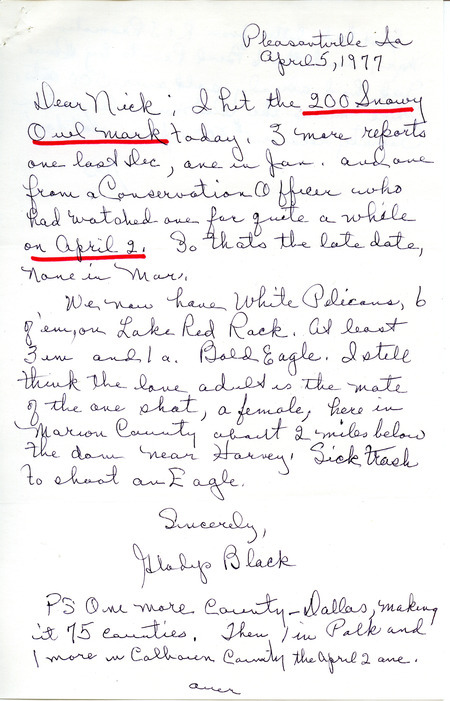 Pleasantville Ia
April 5, 1977
Dear Nick; I hit the 200 Snowy
Owl mark today. 3 more reports
one last Dec, one in Jan. and one
from a Conservation Officer who
had watched one for quite a while
on April 2. So thats the late date,
none in Mar.
We now have White Pelicans, 6
of 'em, on Lake Red Rock. At least
3 im and 1 a. Bald Eagle. I still
think the lone adult is the mate
of the one shot, a female, here in
Marion County about 2 miles below
the dam near Harvey. Sick trash
to shoot an Eagle.
Sincerely,
Gladys Black
PS One more County - Dallas, making
it 75 counties. Then 1 in Polk and
1 more in Calhoun County the April 2 one.
over